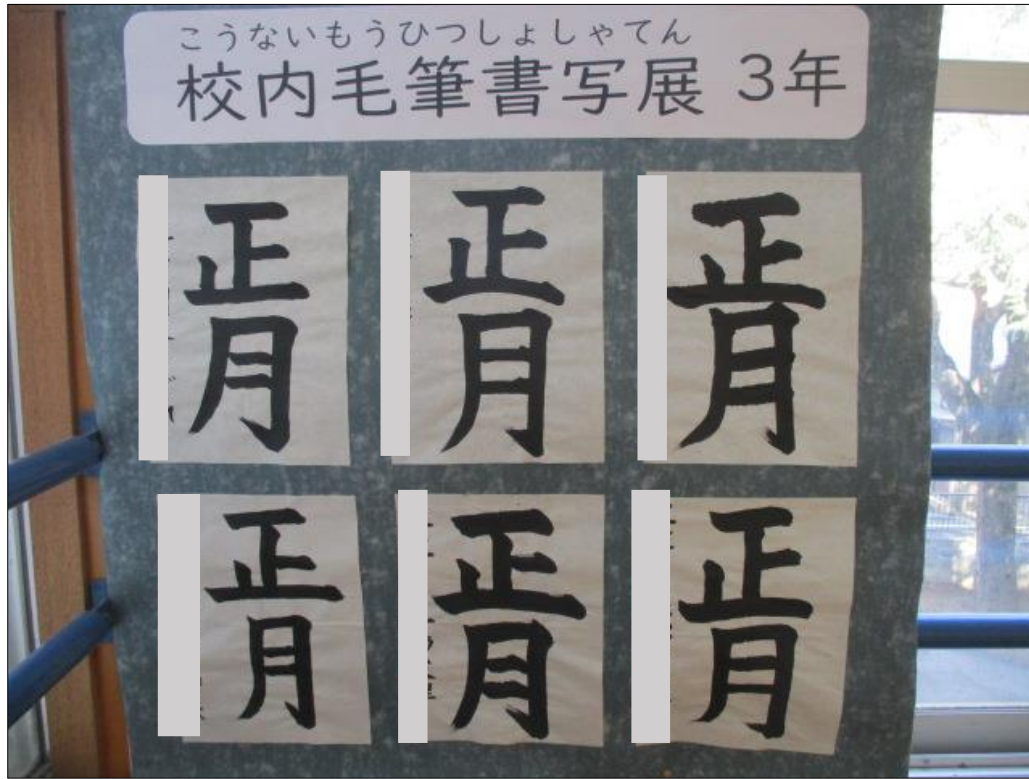 こうないもうひつしょしゃてん
校内毛筆書写展 3年
正月
正月
正月
正月
正月
正月